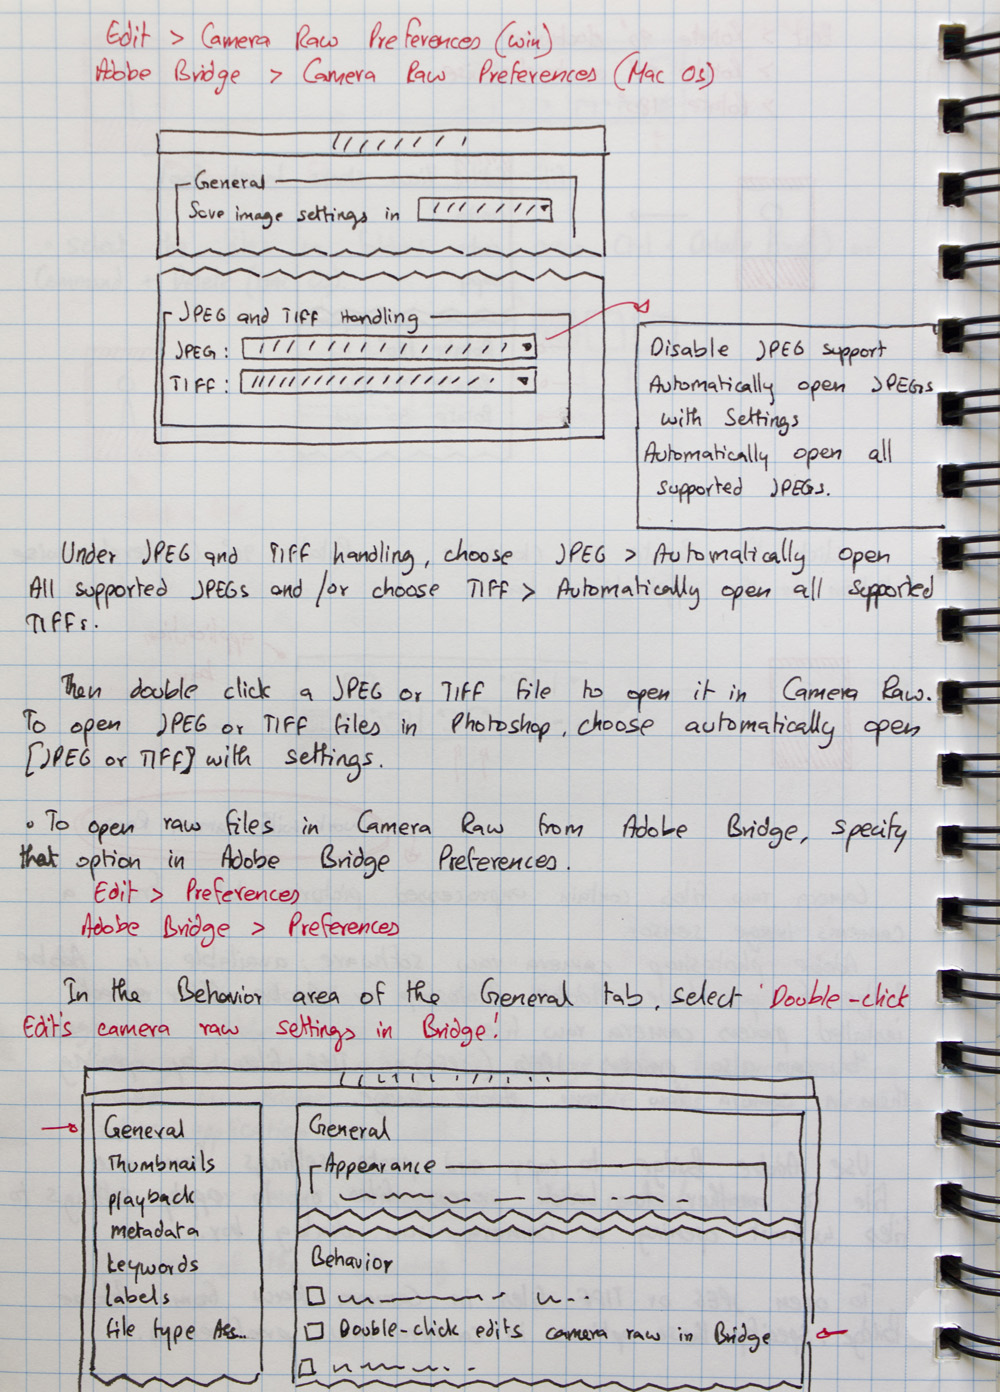 Edit > Camera Raw Preferences (win)
Adobe Bridge > Camera Raw Preferences (Mac Os)
General
Save image settings in
JPEG and TIFF Handling
JPEG :
TIFF :
Disable JPEG support
Automatically open JPEGs
with Settings
Automatically open all
supported JPEGs.
Under JPEG and TIFF handling, choose JPEG > Automatically open
All supported JPEGs and /or choose TIFF > Automatically open all supported
TIFFs.
Then double click a JPEG or TIFF file to open it in Camera Raw.
To open JPEG or TIFF files in Photoshop, choose automatically open
[JPEG or TIFF] with settings.
• To open raw files in Camera Raw from Adobe Bridge, specify
that option in Adobe Bridge Preferences.
Edit > Preferences
Adobe Bridge > Preferences
In the Behavior area of the General tab, select 'Double-click
Edit's camera raw settings in Bridge!
General
Thumbnails
playback
metadata
keywords
labels
file type Ass...
General
Appearance
Behavior
Double-click edits camera raw in Bridge